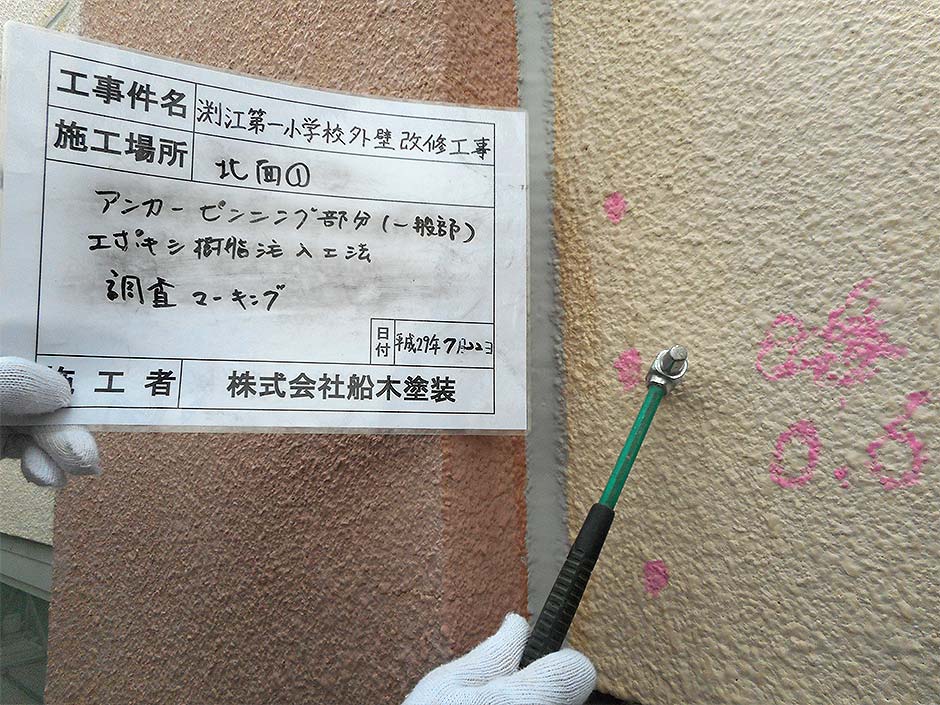 工事件名 渕江第一小学校外壁改修工事
施工場所 北面①
アンカーピンニング部分(一般部)
エポキシ樹脂注入工法
調査マーキング
日付 平成29年7月22日
施工者 株式会社船木塗装
0.5